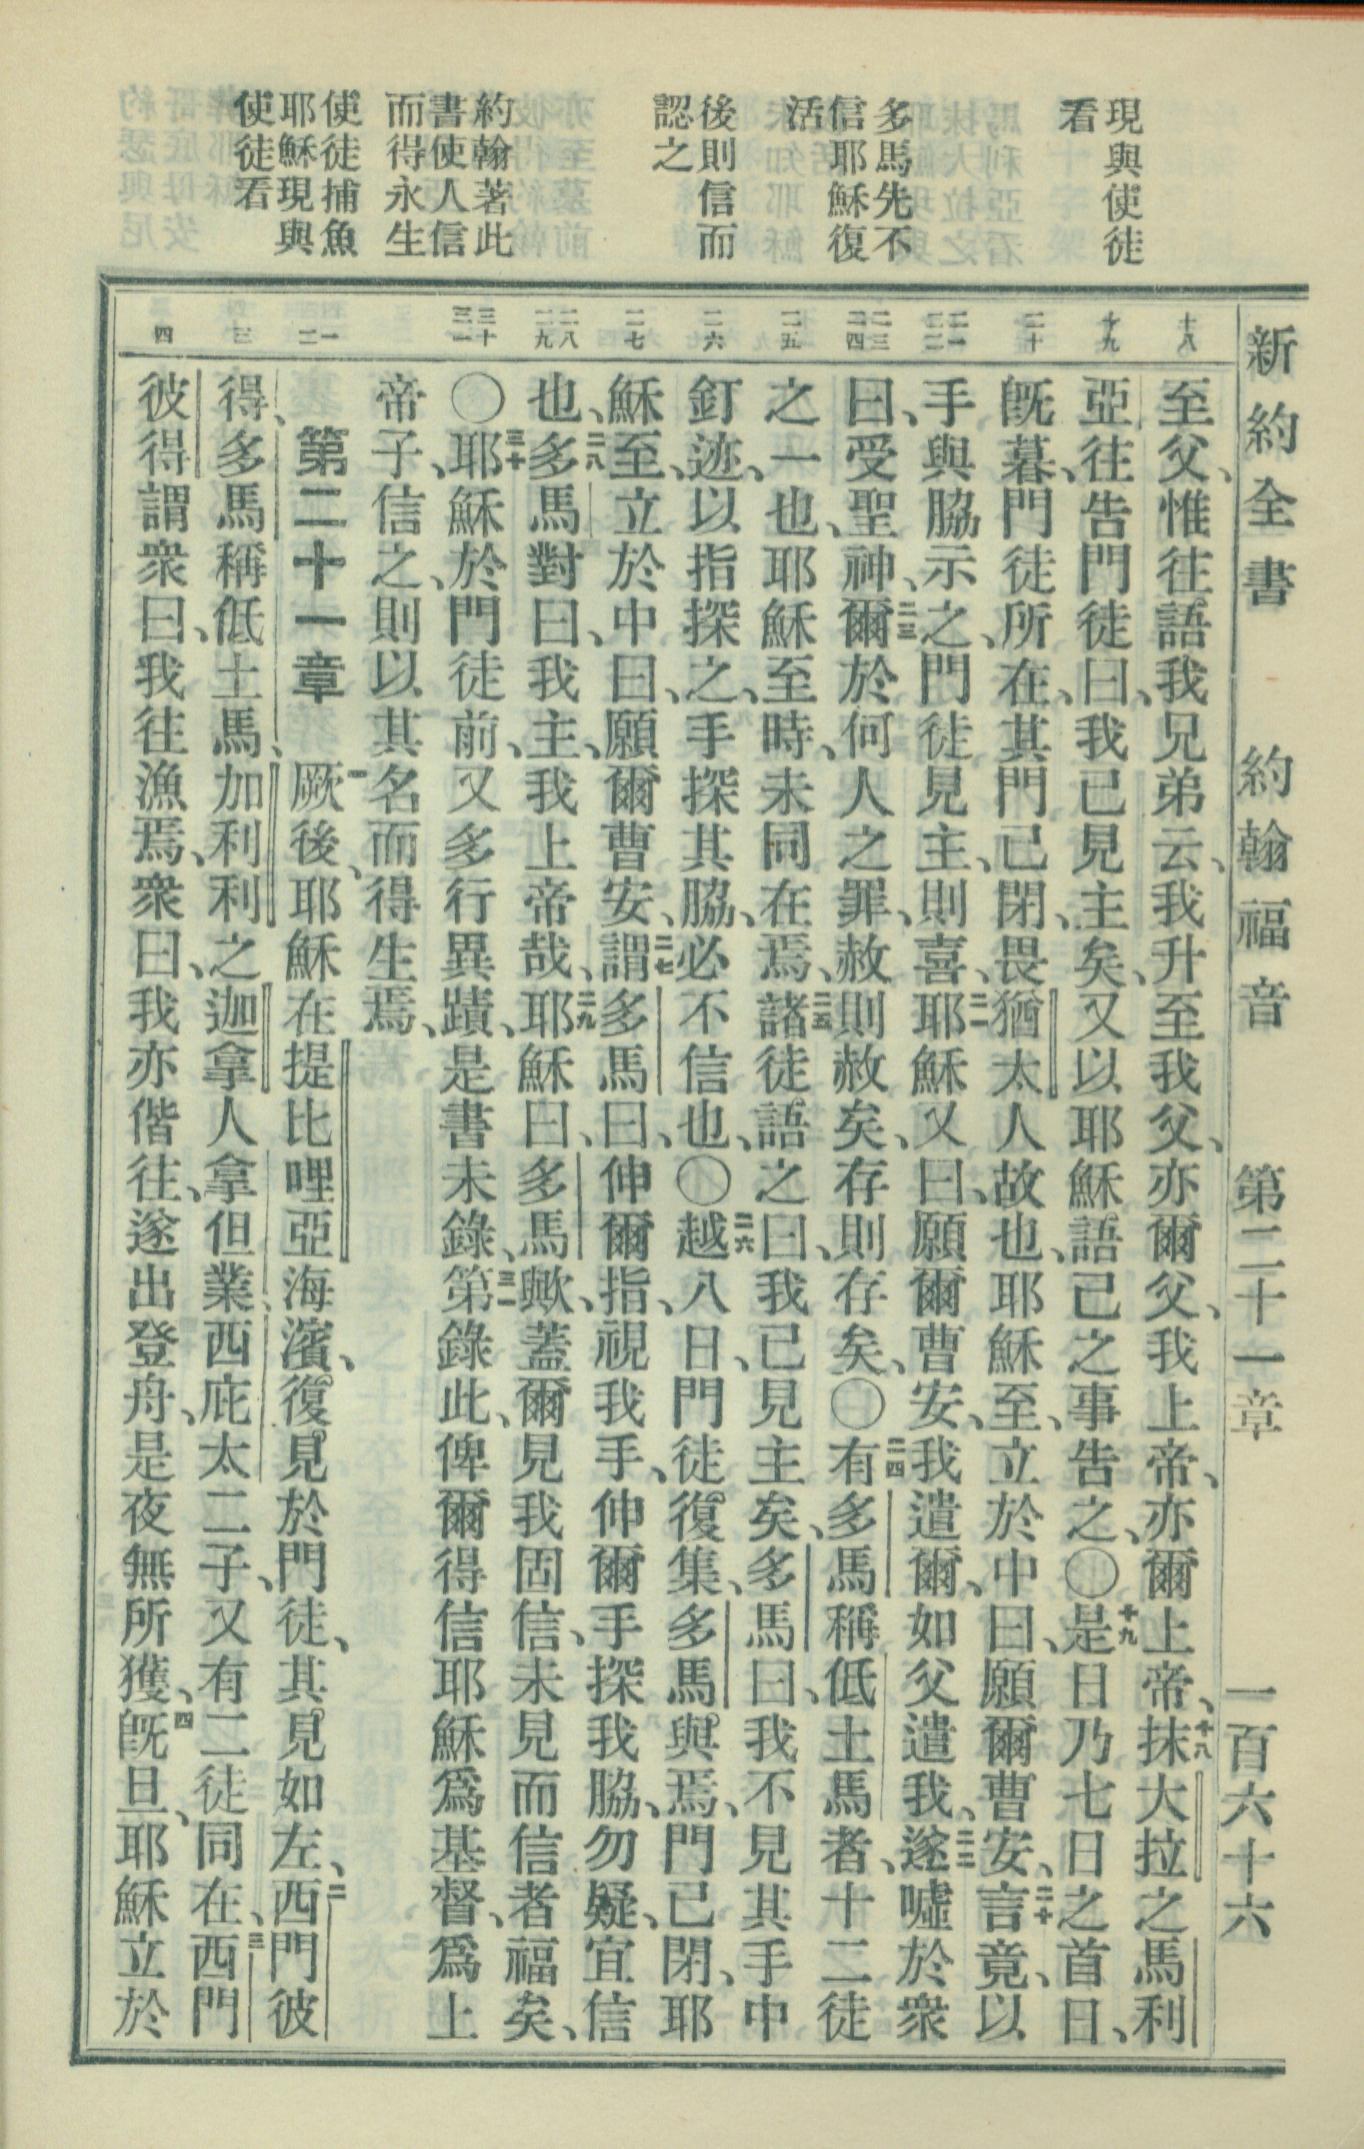 新約全書　約翰福音　第二十一章　一百六十六
現與使徒
看
多馬先不
信耶穌復
活
後則信而
認之
約翰著此
書使人信
而得永生
使徒捕魚
耶穌現與
使徒看
十八
十九
二十
二一
二二
二三
二四
二五
二六
二七
二八
二九
三十
三一
一
二
三
四
至父、惟往語我兄弟云、我升至我父、亦爾父、我上帝、亦爾上帝、十八抹大拉之馬利
亞、往告門徒曰、我已見主矣、又以耶穌語己之事告之、〇十九是日乃七日之首日、
旣暮、門徒所在、其門已閉、畏猶太人故也、耶穌至、立於中曰、願爾曹安、二十言竟、以
手與脇示之、門徒見主、則喜、二一耶穌又曰、願爾曹安、我遣爾、如父遣我、二二遂噓於衆
曰、受聖神、二三爾於何人之罪、赦則赦矣、存則存矣、〇二四有多馬稱低土馬者、十二徒
之一也、耶穌至時、未同在焉、二五諸徒語之曰、我已見主矣、多馬曰、我不見其手中
釘迹、以指探之、手探其脇、必不信也、〇二六越八日、門徒復集、多馬與焉、門已閉、耶
穌至、立於中曰、願爾曹安、二七謂多馬曰、伸爾指、視我手、伸爾手探我脇、勿疑、宜信
也、二八多馬對曰、我主、我上帝哉、二九耶穌曰、多馬歟、蓋爾見我固信、未見而信者福矣、
〇三十耶穌於門徒前、又多行異蹟、是書未錄、三一第錄此、俾爾得信耶穌爲基督、爲上
帝子、信之、則以其名而得生焉、
第二十一章　一厥後、耶穌在提比哩亞海濱、復見於門徒、其見如左、二西門彼
得、多馬稱低土馬、加利利之迦拿人拿但業、西庇太二子、又有二徒同在、三西門
彼得謂衆曰、我往漁焉、衆曰、我亦偕往、遂出登舟、是夜無所獲、四旣旦、耶穌立於